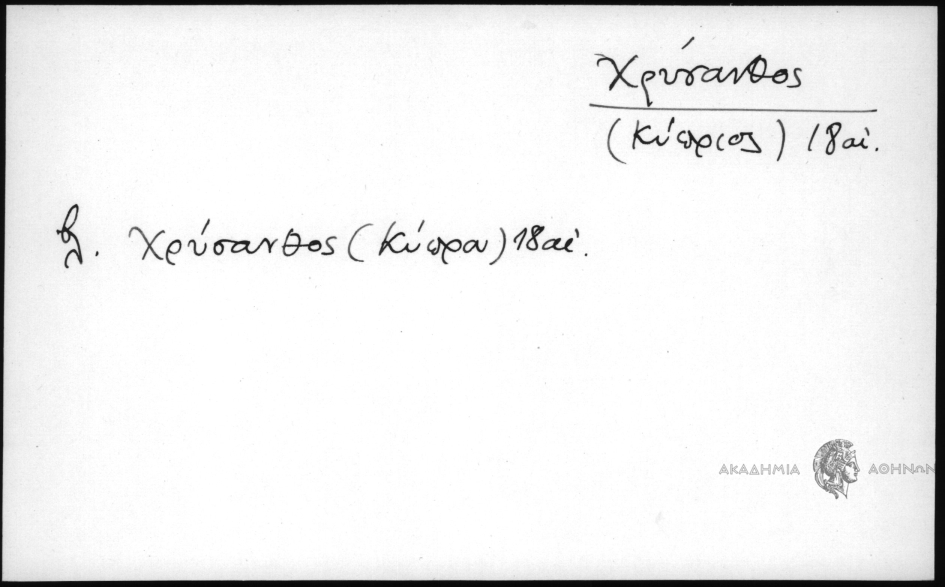 Χρύσανθος
(Κύπριος) 18 αἰ.
βλ. Χρύσανθος (Κύπρου) 18 αἰ.
ΑΚΑΔΗΜΙΑ ΑΘΗΝΩΝ